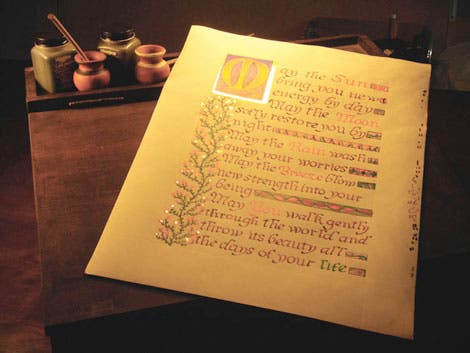 May the Sun
bring you new
energy by day
May the Moon
softly restore you by
night
May the Rain wash
away your worries
May the Breeze blow
new strength into your
being
May You walk gently
through the world and
its beauty all
the days of your life